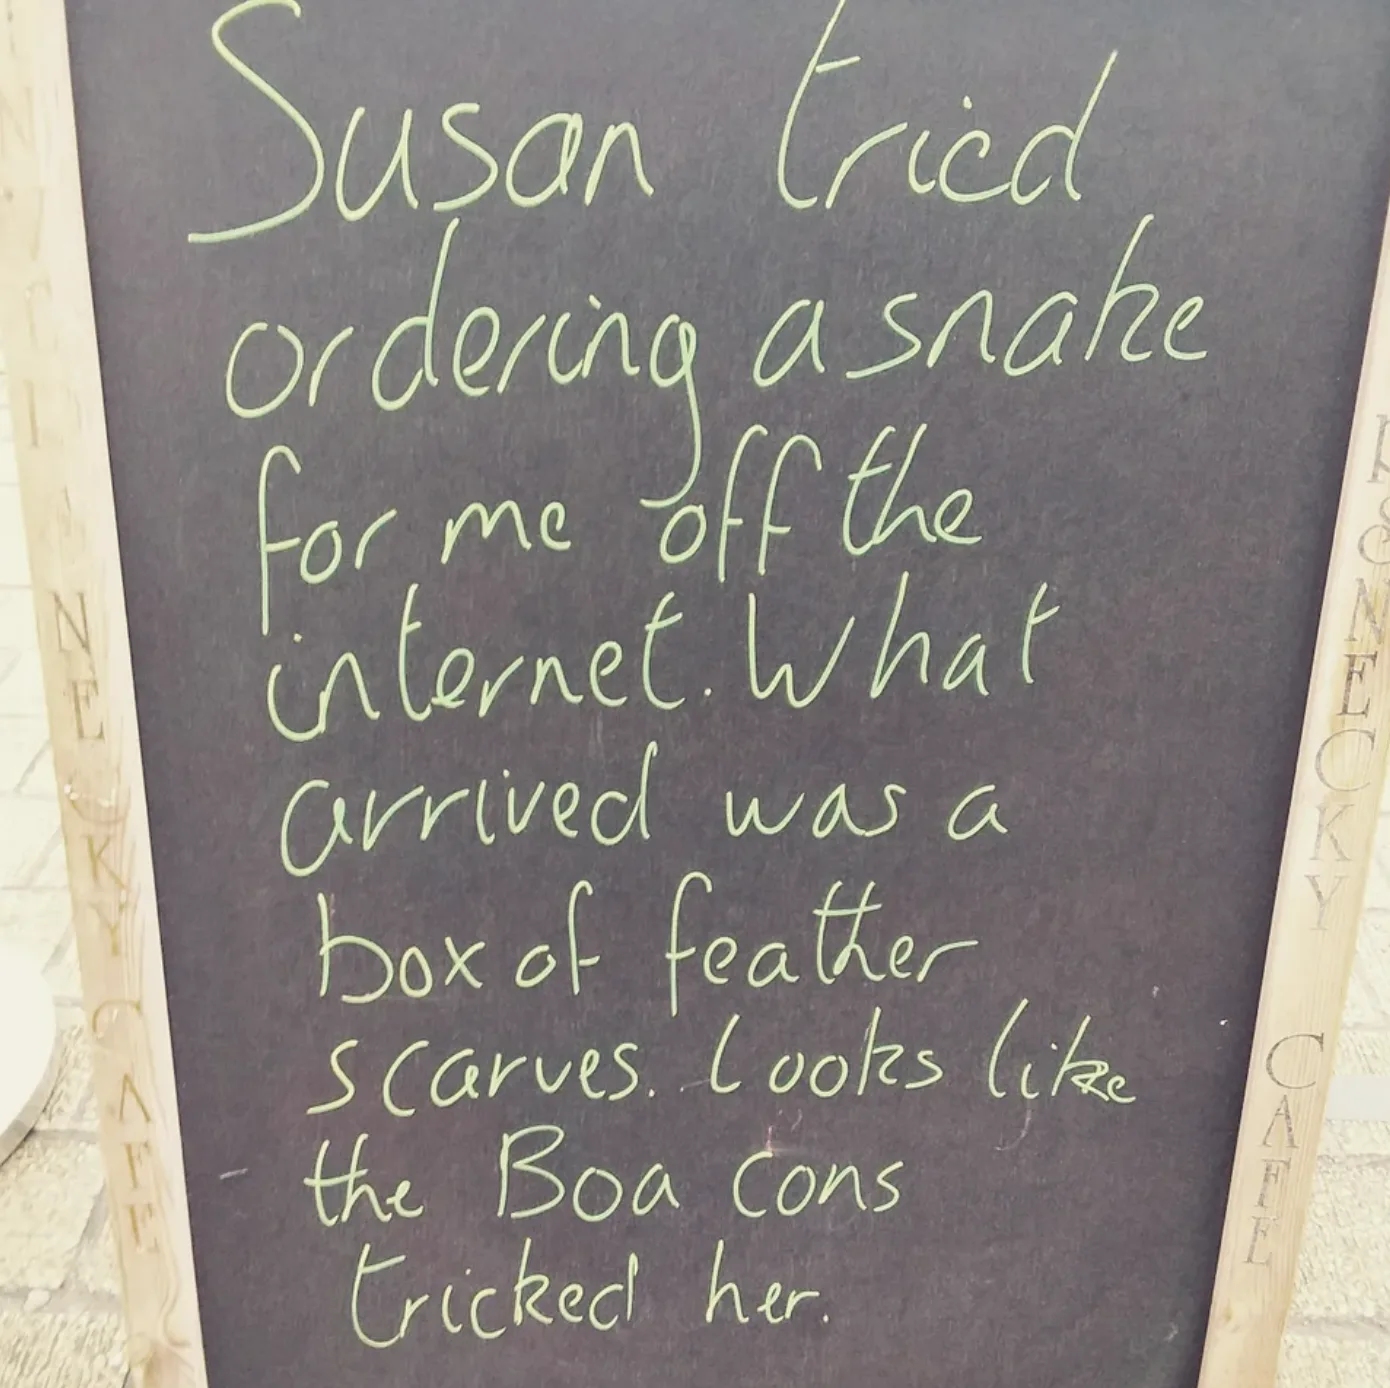 Susan tried
ordering a snake
for me off the
internet. What
arrived was a
box of feather
scarves. Looks like
the Boa cons
tricked her.
NE CKY CAFE
NECKY CAFE